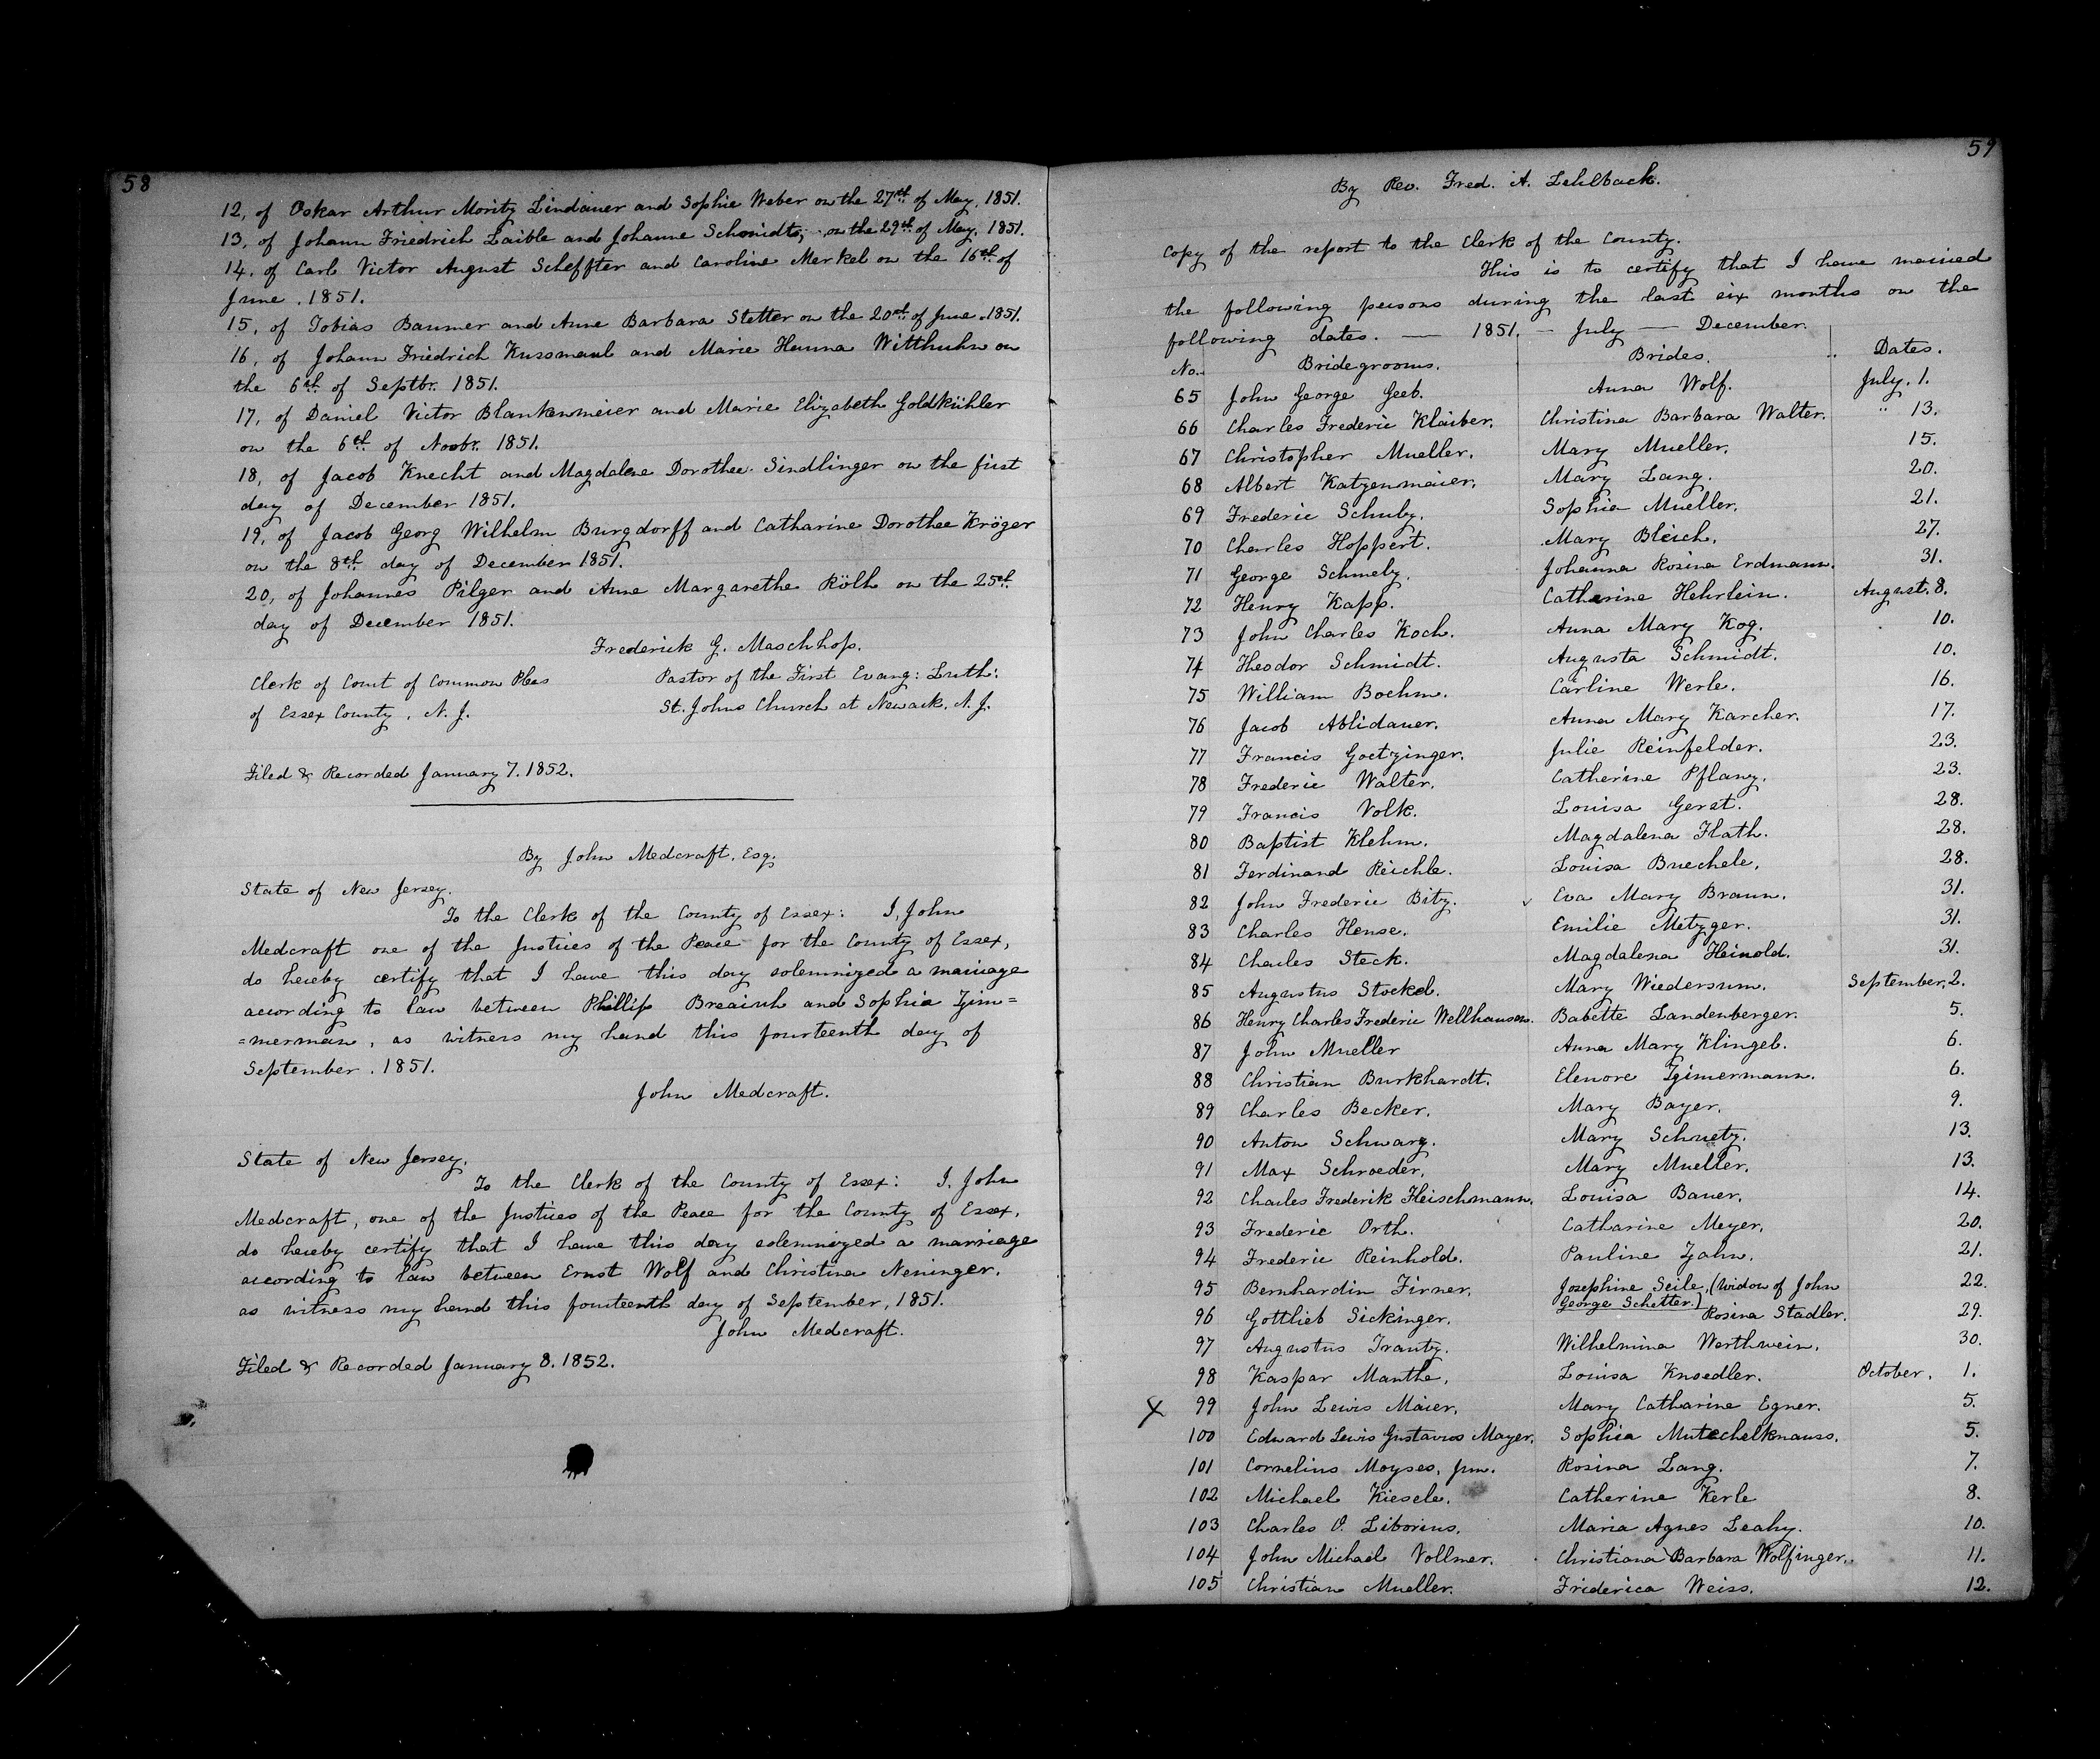 58
12, of Oskar Arthur Moritz Lindauer and Sophie Weber on the 27th of May, 1851.
13, of Johann Friedrich Laible and Johanne Schmidt, on the 29th of May, 1851.
14, of Carl Victor August Scheffter and Caroline Merkel on the 16th of
June. 1851.
15, of Tobias Baumer and Anne Barbara Stetter on the 20th of June. 1851.
16, of Johann Friedrich Kussmaul and Marie Hanna Witthuhn on
the 6th of Septbr. 1851.
17, of Daniel Victor Blankenmeier and Marie Elizabeth Goldkühler
on the 6th of Novbr. 1851.
18, of Jacob Knecht and Magdalene Dorothee Sindlinger on the first
day of December 1851.
19, of Jacob Georg Wilhelm Burgdorff and Catharine Dorothee Kröger
on the 8th day of December 1851.
20, of Johannes Pilger and Anne Margarethe Rölh on the 25th
day of December 1851.
Frederick G. Maschhop.
Clerk of Court of Common Pleas Pastor of the First Evang: Luth:
of Essex County, N. J. St. Johns Church at Newark, N. J.
Filed & Recorded January 7. 1852.
By John Medcraft, Esq.
State of New Jersey.
To the Clerk of the County of Essex: I, John
Medcraft one of the Justices of the Peace for the County of Essex,
do hereby certify that I have this day solemnized a marriage
according to law between Phillip and Sophia Zim=
=merman, as witness my hand this fourteenth day of
September. 1851.
John Medcraft.
State of New Jersey.
To the Clerk of the County of Essex: I, John
Medcraft, one of the Justices of the Peace for the County of Essex,
do hereby certify that I have this day solemnized a marriage
according to law between Ernst Wolf and Christina Neninger,
as witness my hand this fourteenth day of September, 1851.
John Medcraft.
Filed & Recorded January 8. 1852.
59
By Rev. Fred. A. Lehlback.
Copy of the report to the Clerk of the County.
This is to certify that I have married
the following persons during the last six months on the
following dates. — 1851. — July — December.
No. Bridegrooms. Brides. Dates.
65 John George Geeb. Anna Wolf. July. 1.
66 Charles Frederic Klaiber. Christina Barbara Walter. " 13.
67 Christopher Mueller. Mary Mueller. 15.
68 Albert Katzenmaier. Mary Lang. 20.
69 Frederic Schuby. Sophia Mueller. 21.
70 Charles Hoppert. Mary Bleich. 27.
71 George Schmely. Johanna Rosina Erdmann. 31.
72 Henry Kapp. Catharine Hehrlein. August. 8.
73 John Charles Koch. Anna Mary Kog. 10.
74 Theodor Schmidt. Augusta Schmidt. 10.
75 William Boehm. Carline Werle. 16.
76 Jacob Ablidauer. Anna Mary Karcher. 17.
77 Francis Goetzinger. Julie Reinfelder. 23.
78 Frederic Walter. Catherine Pflanz. 23.
79 Francis Volk. Louisa Gerst. 28.
80 Baptist Klehm. Magdalena Flath. 28.
81 Ferdinand Reichle. Louisa Buechele. 28.
82 John Frederic Bitz. Eva Mary Braun. 31.
83 Charles Hense. Emilie Metzger. 31.
84 Charles Steck. Magdalena Heinold. 31.
85 Augustus Stockel. Mary Wiedersum. September, 2.
86 Henry Charles Frederic Wellhausen. Babette Landenberger. 5.
87 John Mueller Anna Mary Klingel. 6.
88 Christian Burkhardt. Elenore Zimmermann. 6.
89 Charles Becker. Mary Bayer. 9.
90 Anton Schwarz. Mary Schuetz. 13.
91 Max Schroeder. Mary Mueller. 13.
92 Charles Frederik Fleischmann. Louisa Bauer. 14.
93 Frederic Orth. Catharine Meyer. 20.
94 Frederic Reinhold. Pauline Zahn. 21.
95 Bernhardin Firner. Josephine Seile, (widow of John 22.
George Schetter.)
96 Gottlieb Sickinger. Rosina Stadler. 29.
97 Augustus Trautz. Wilhelmina Werthwein. 30.
98 Kaspar Manthe. Louisa Knoedler. October. 1.
X 99 John Lewis Maier. Mary Catharine Egner. 5.
100 Edward Lewis Gustavus Mayer. Sophia Mutschelknauss. 5.
101 Cornelius Moyses, jun. Rosina Lang. 7.
102 Michael Kiesele. Catherine Kerle 8.
103 Charles O. Liborius. Maria Agnes Leahy. 10.
104 John Michael Vollmer. Christiana Barbara Wolfinger. 11.
105 Christian Mueller. Friderica Weiss. 12.